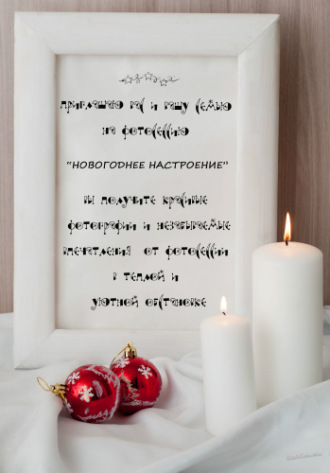 приглашаю вас и вашу семью
на фотосессию
"НОВОГОДНЕЕ НАСТРОЕНИЕ"
вы получите красивые
фотографии и незабываемые
впечатления от фотосессии
в теплой и
уютной обстановке